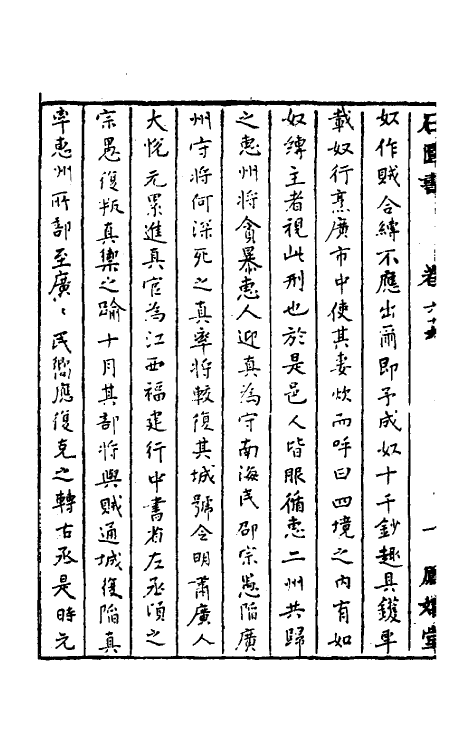 石匱書 卷六 一 鳳嬉堂
奴作賊合縛不應出爾即予成奴十千鈔趣具鑊車
載奴行烹廣市中使其妻炊而呼曰四境之內有如
奴縛主者視此刑也於是邑人皆服循惠二州共歸
之惠州將貪暴惠人迎真為守南海民邵宗愚陷廣
州守將何深死之真率將較復其城號令明肅廣人
大悅元累進真官為江西福建行中書省左丞頃之
宗愚復叛真禦之踰十月其部將與賊通城復陷真
率惠州所部至廣〻民嚮應復克之轉右丞是時元